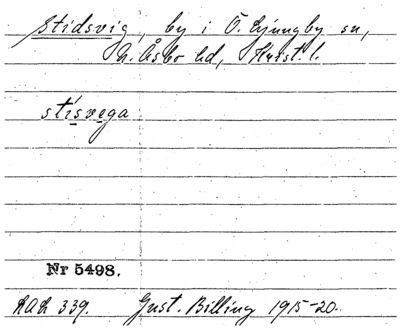 Stidsvig, by i Ö. Ljungby sn,
N. Åsbo hd, Krist. l.
stísvega
Nr 5498.
LAL 339. Gust. Billing 1915-20.